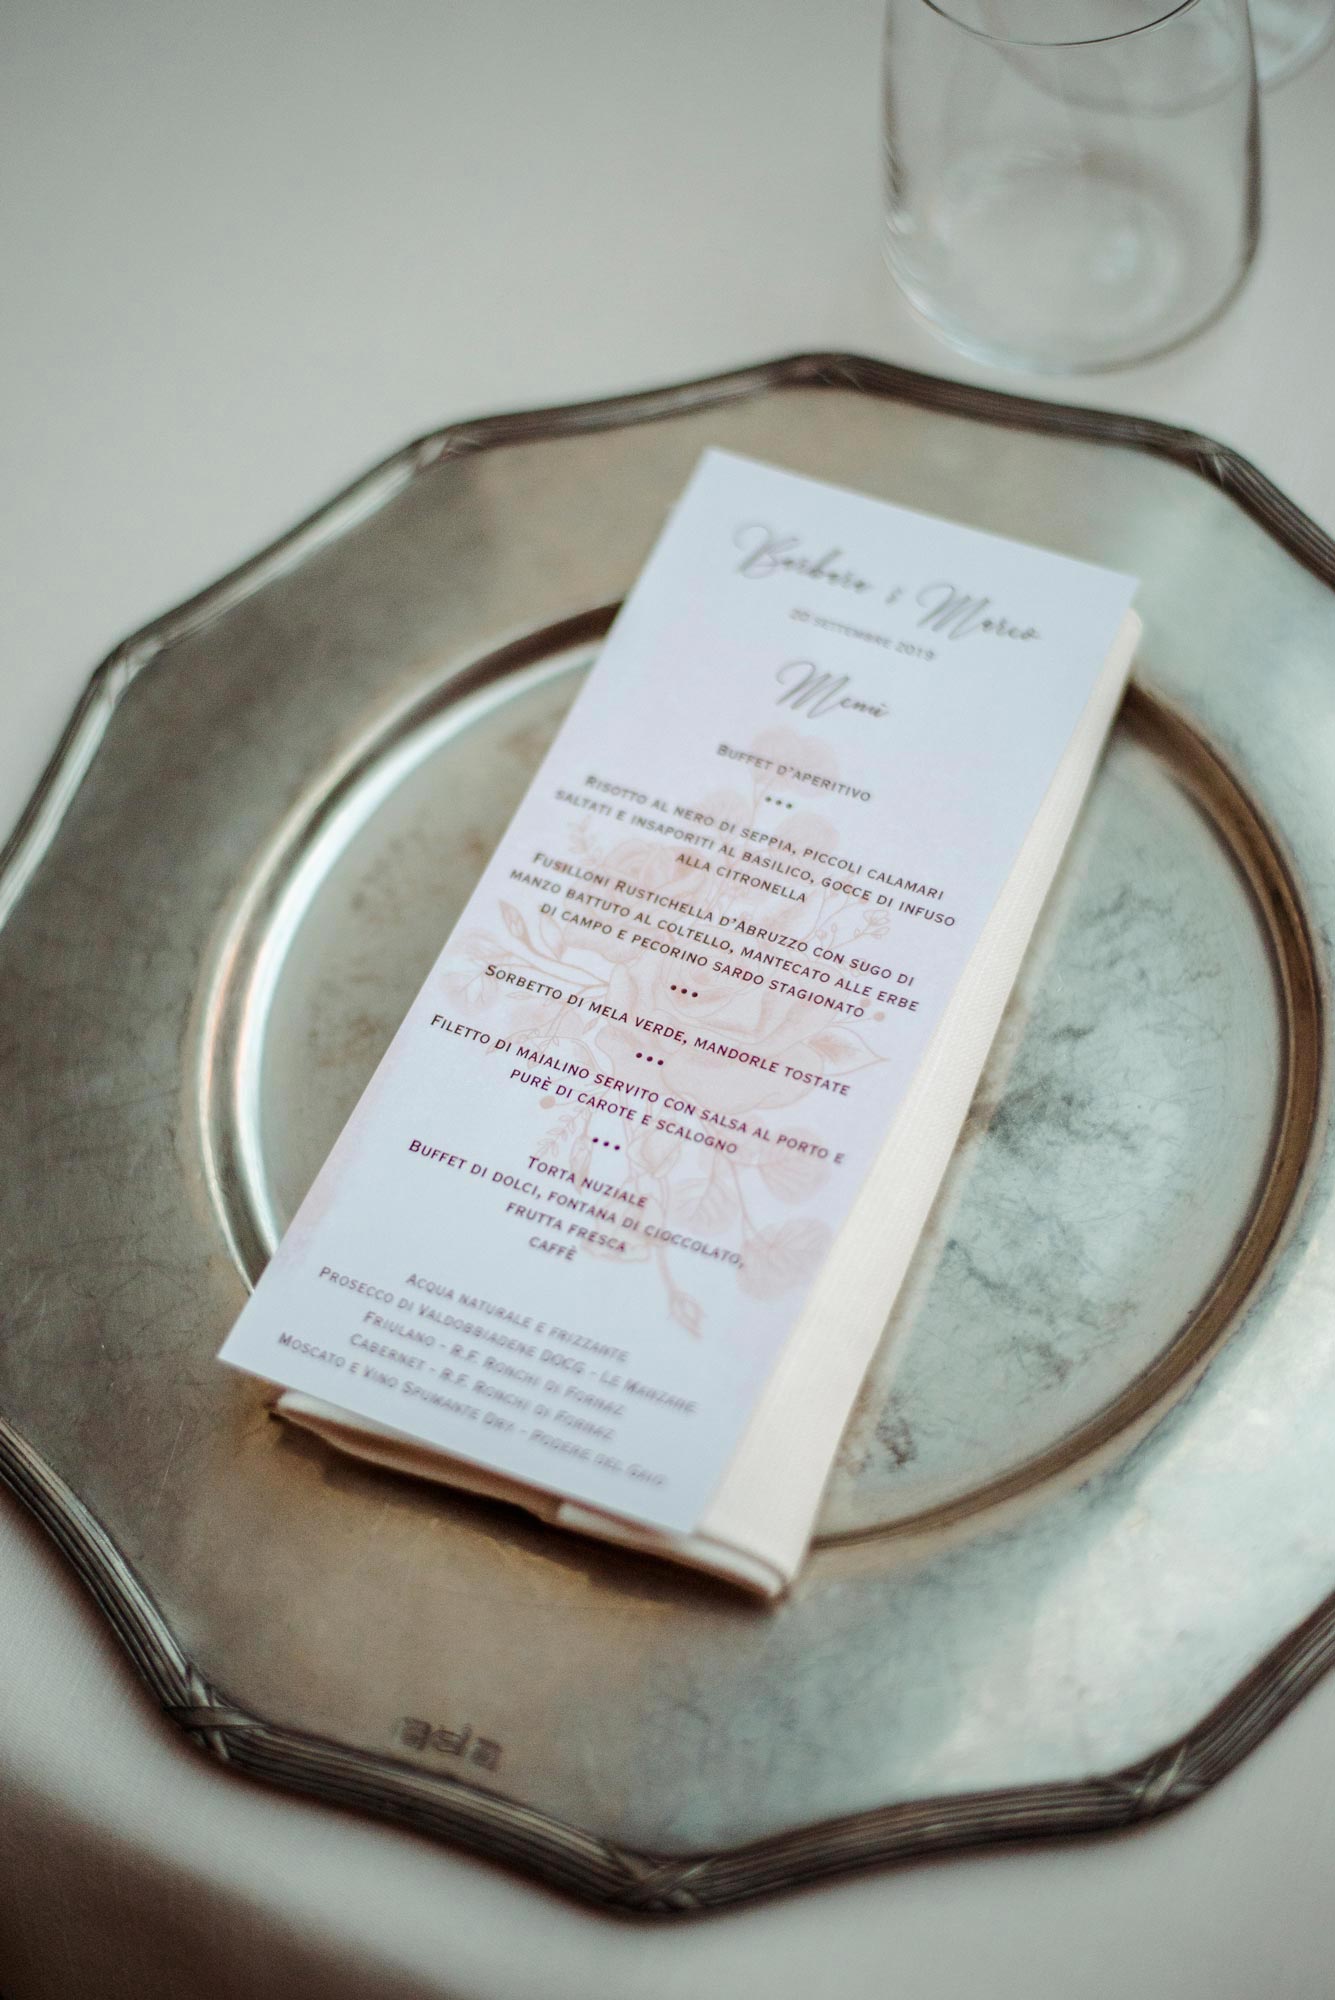 Barbara e Marco
20 settembre 2019
Menù
Buffet d'aperitivo
•••
Risotto al nero di seppia, piccoli calamari
saltati e insaporiti al basilico, gocce di infuso
alla citronella
Fusilloni Rustichella d'Abruzzo con sugo di
manzo battuto al coltello, mantecato alle erbe
di campo e pecorino sardo stagionato
•••
Sorbetto di mela verde, mandorle tostate
•••
Filetto di maialino servito con salsa al porto e
purè di carote e scalogno
•••
Torta nuziale
Buffet di dolci, fontana di cioccolato,
frutta fresca
caffè
Acqua naturale e frizzante
Prosecco di Valdobbiadene DOCG - Le Manzane
Friulano - R.F. Ronchi di Fornaz
Cabernet - R.F. Ronchi di Fornaz
Moscato e Vino Spumante Dry - Podere del Gaio